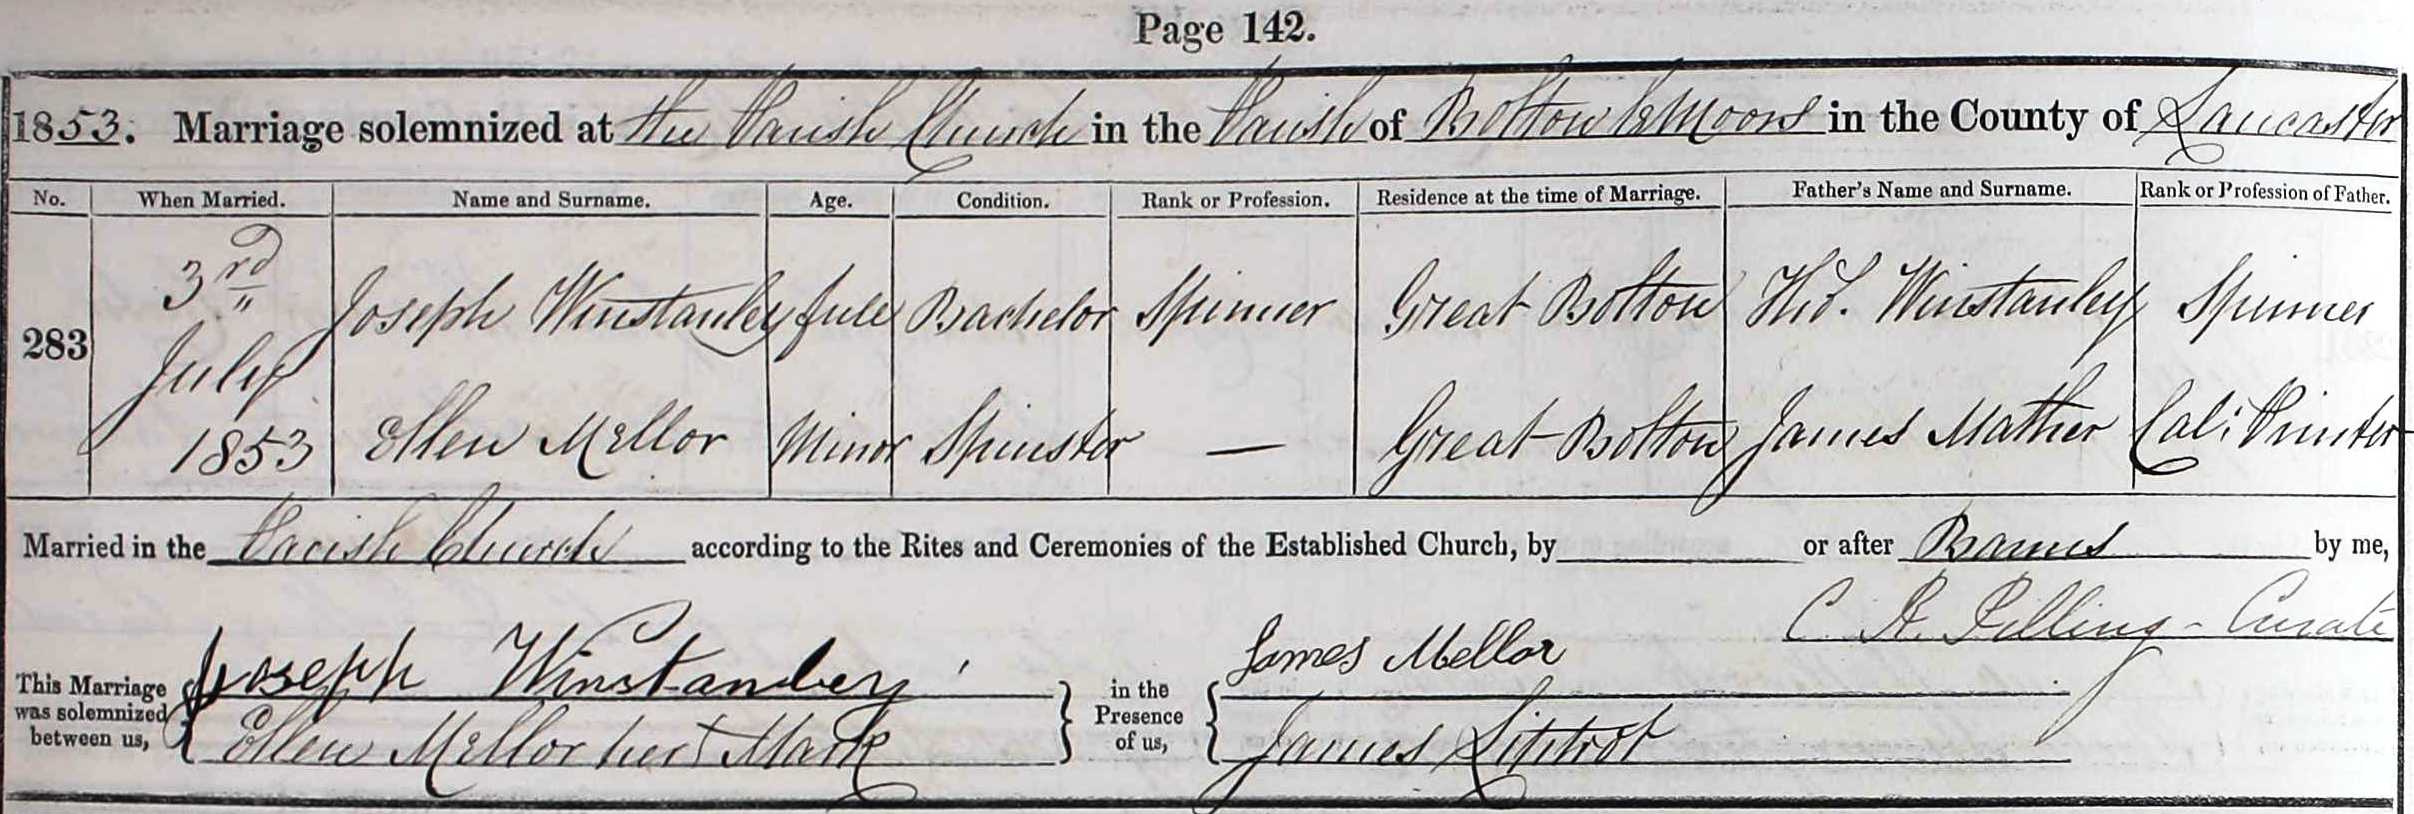 Page 142.
1853. Marriage solemnized at the Parish Church in the Parish of Bolton le Moors in the County of Lancaster
No. When Married. Name and Surname. Age. Condition. Rank or Profession. Residence at the time of Marriage. Father's Name and Surname. Rank or Profession of Father.
283 3rd July 1853 Joseph Winstanley full Bachelor Spinner Great Bolton Thos. Winstanley Spinner
Ellen Mellor Minor Spinster — Great Bolton James Mather Cali Printer
Married in the Parish Church according to the Rites and Ceremonies of the Established Church, by or after Banns by me,
C. A. Pilling - Curate
This Marriage was solemnized between us, Joseph Winstanley in the Presence of us, James Mellor
Ellen Mellor her + Mark James